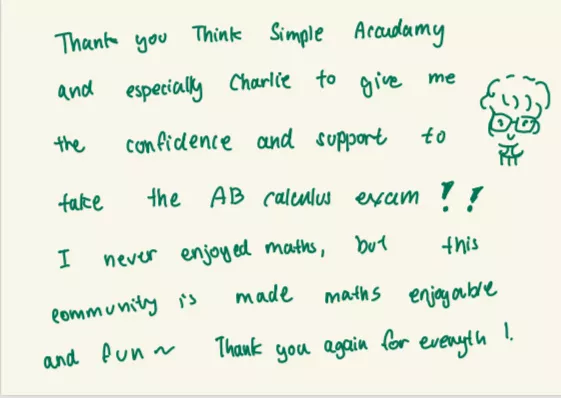 Thank you Think Simple Acaudamy
and especially Charlie to give me
the confidence and support to
take the AB calculus exam !!
I never enjoyed maths, but this
community is made maths enjoyable
and fun ~ Thank you again for everyth !.